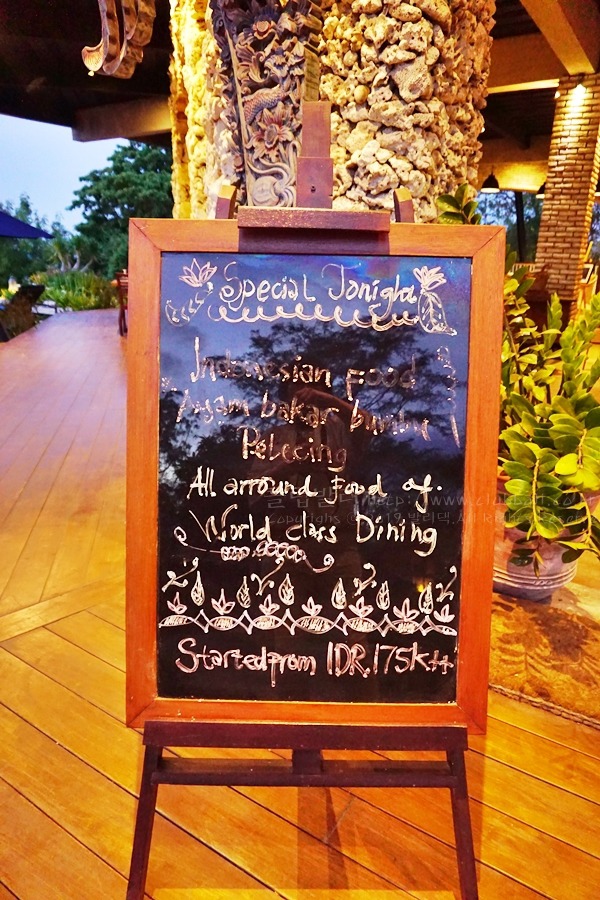 Special Tonight
Indonesian Food
Ayam bakar bumbu
Pelecing
All arround Food of.
World class Dining
Started from IDR.175k++